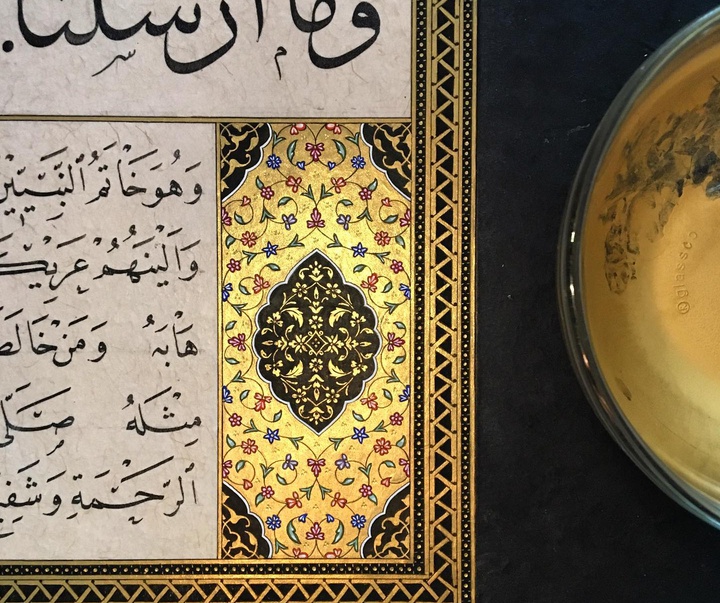 وما ارسلنا
وَهُوَ خَاتَمُ النَّبِيِّينَ
وَأَلْيَنَهُمْ عَرِيكَ
هَابَهُ وَمَنْ خَالَطَ
مِثْلَهُ صَلَّى
الرَّحْمَةِ وَشَفِي
@glassco